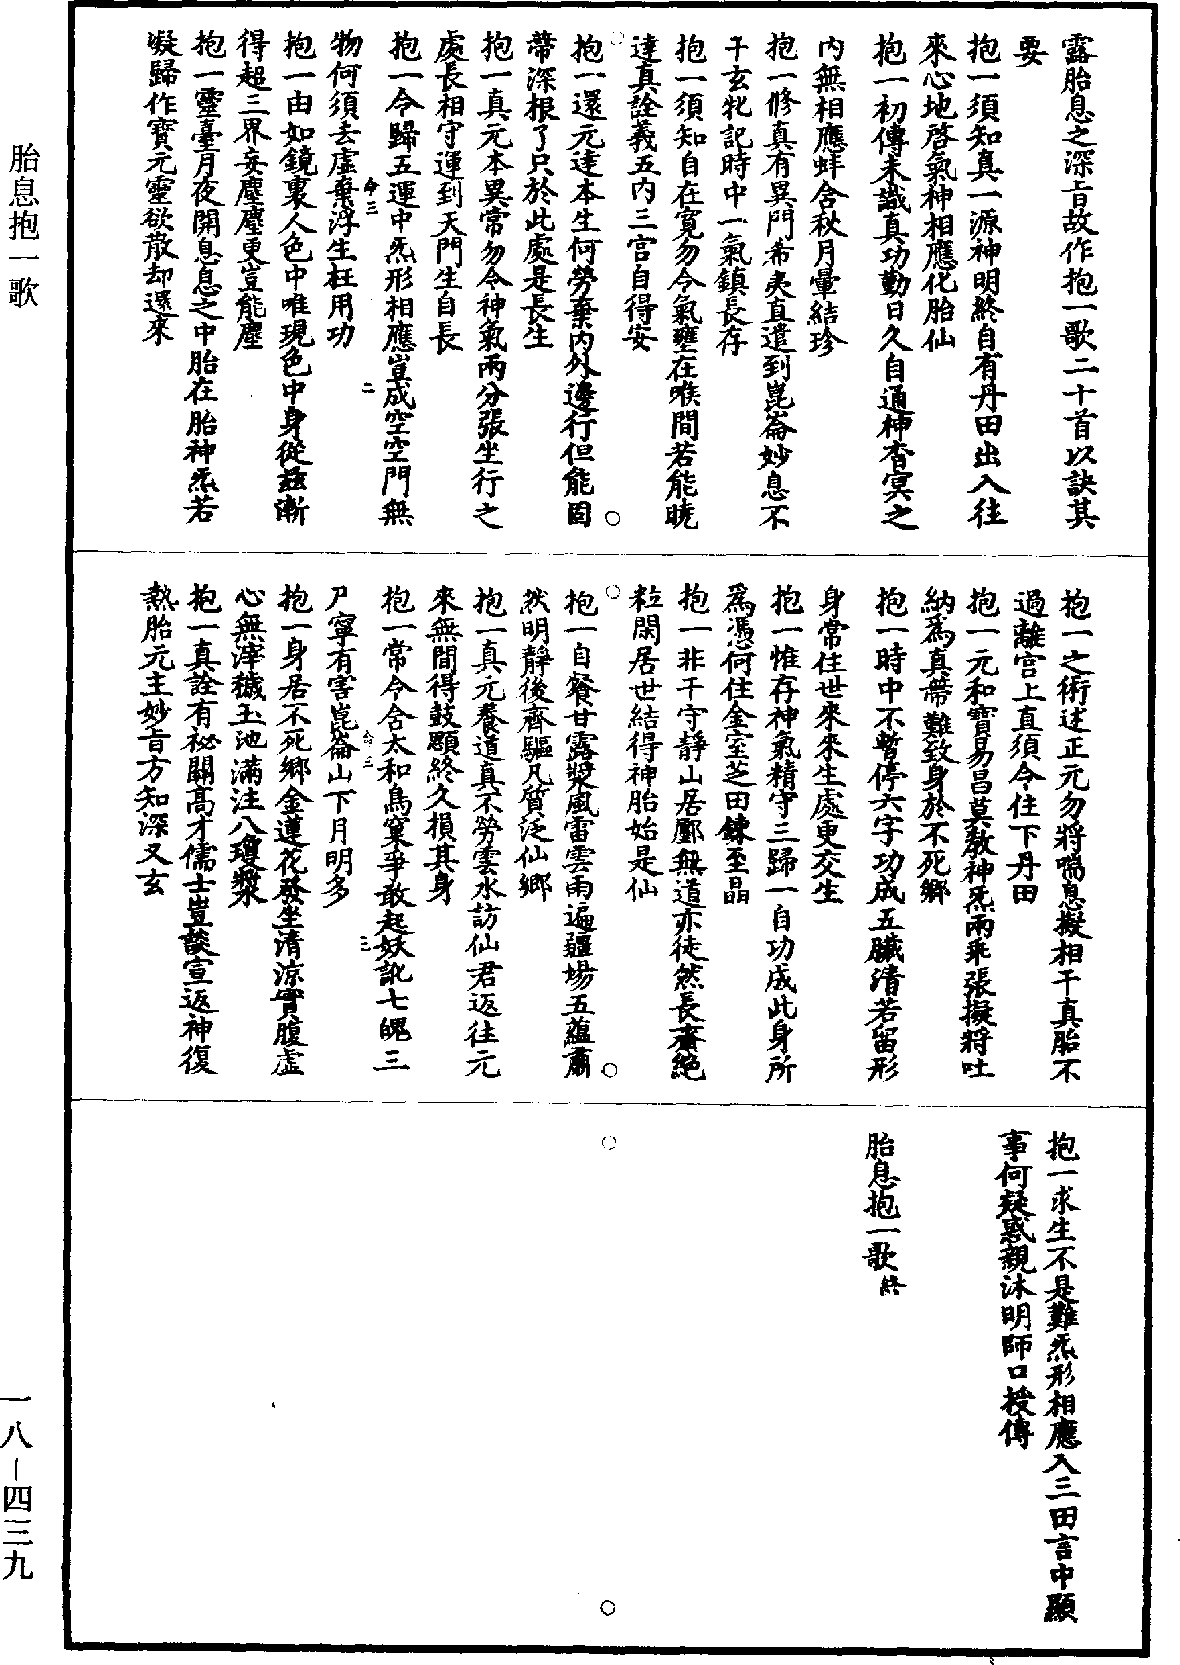 胎息抱一歌
一八—四三九
露胎息之深旨故作抱一歌二十首以訣其
要
抱一須知真一源神明終自有丹田出入往
來心地啓氣神相應化胎仙
抱一初傳未識真功勤日久自通神杳冥之
內無相應蚌含秋月暈結珍
抱一修真有異門希夷直遣到崑崙妙息不
干玄牝記時中一氣鎮長存
抱一須知自在寬勿令氣壅在喉間若能曉
達真詮義五內三宮自得安
抱一還元達本生何勞棄內外邊行但能固
蒂深根了只於此處是長生
抱一真元本異常勿令神氣兩分張坐行之
處長相守運到天門生自長
抱一令歸五運中炁形相應豈成空空門無
物何須去虛棄浮生枉用功
抱一由如鏡裏人色中唯現色中身從茲漸
得超三界妄塵塵更豈能塵
抱一靈臺月夜開息息之中胎在胎神炁若
凝歸作寶元靈欲散却還來
抱一之術述正元勿將喘息擬相干真胎不
過離宮上直須令住下丹田
抱一元和寶易昌莫教神炁兩乖張擬將吐
納為真蒂難致身於不死鄉
抱一時中不暫停六字功成五臟清若留形
身常住世來來生處更交生
抱一惟存神氣精守三歸一自功成此身所
為憑何住金室芝田鍊至晶
抱一非干守靜山居鄽無道亦徒然長齋絕
粒閑居世結得神胎始是仙
抱一自餐甘露漿風雷雲雨遍疆場五蘊肅
然明靜後齊驅凡質泛仙鄉
抱一真元養道真不勞雲水訪仙君返往元
來無間得鼓顋終久損其身
抱一常令含太和鳥窠爭敢起妖訛七魄三
尸寧有害崑崙山下月明多
抱一身居不死鄉金蓮花發坐清涼實腹虛
心無滓穢玉池滿注八瓊漿
抱一真詮有祕關高才儒士豈談宣返神復
熱胎元主妙旨方知深又玄
抱一求生不是難炁形相應入三田言中顯
事何疑惑親沐明師口授傳
胎息抱一歌終